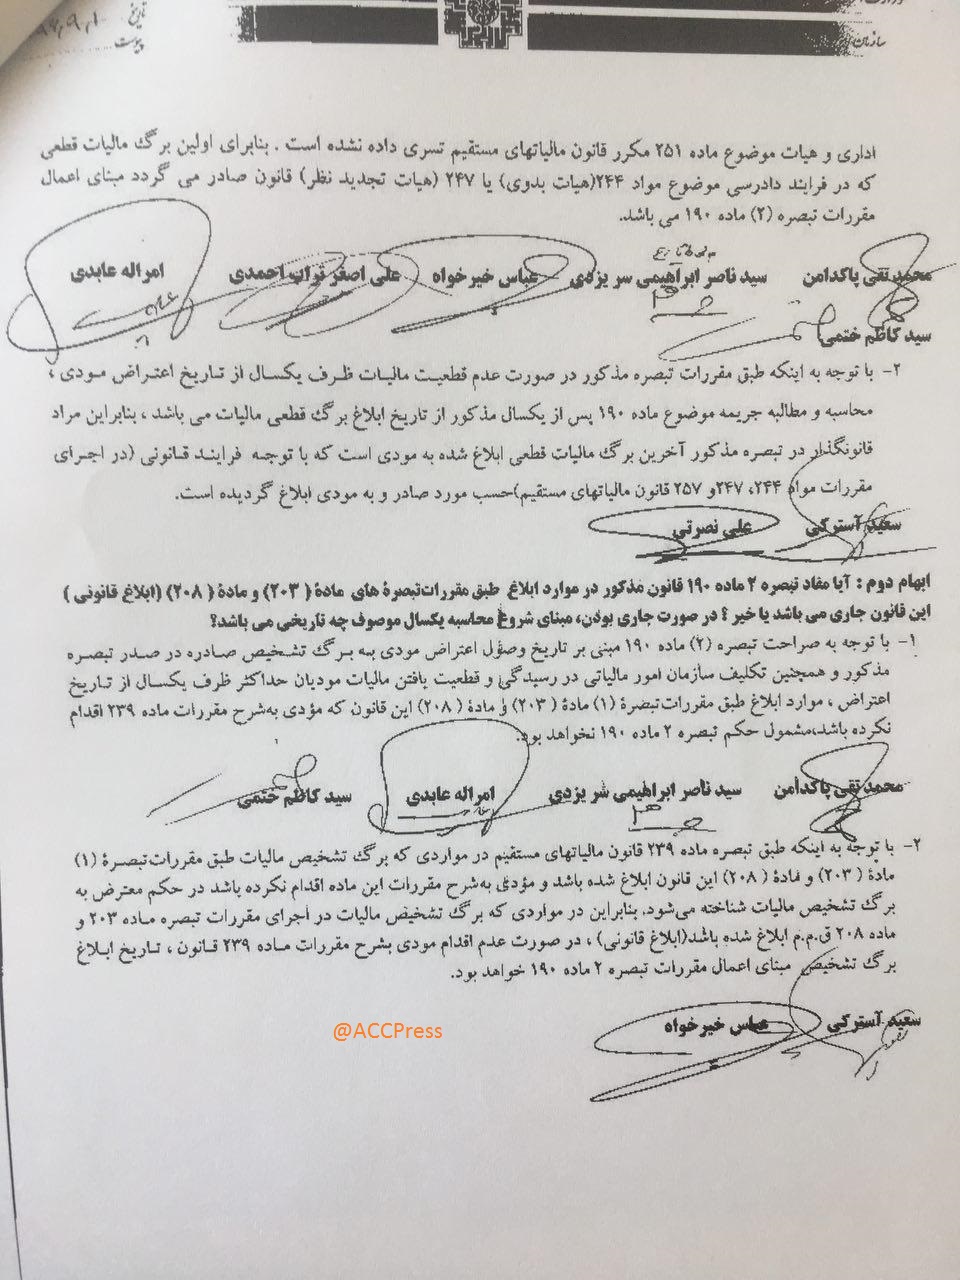 تاریخ
پیوست
سازمان
اداری و هیات موضوع ماده ۲۵۱ مکرر قانون مالیاتهای مستقیم تسری داده نشده است . بنابرای اولین برگ مالیات قطعی
که در فرایند دادرسی موضوع مواد ۲۴۴(هیات بدوی) یا ۲۴۷ (هیات تجدید نظر) قانون صادر می گردد مبنای اعمال
مقررات تبصره (۲) ماده ۱۹۰ می باشد.
محمدتقی پاکدامن سید ناصر ابراهیمی سریزدی عباس خیرخواه علی اصغر تراب احمدی امراله عابدی
سید کاظم ختمی
۲- با توجه به اینکه طبق مقررات تبصره مذکور در صورت عدم قطعیت مالیات ظرف یکسال از تاریخ اعتراض مودی ،
محاسبه و مطالبه جریمه موضوع ماده ۱۹۰ پس از یکسال مذکور از تاریخ ابلاغ برگ قطعی مالیات می باشد ، بنابراین مراد
قانونگذار در تبصره مذکور آخرین برگ مالیات قطعی ابلاغ شده به مودی است که با توجه فرایند قانونی (در اجرای
مقررات مواد ۲۴۴، ۲۴۷و ۲۵۷ قانون مالیاتهای مستقیم)حسب مورد صادر و به مودی ابلاغ گردیده است.
سعید آسترکی علی نصرتی
ابهام دوم : آیا مفاد تبصره ۲ ماده ۱۹۰ قانون مذکور در موارد ابلاغ طبق مقررات‌تبصرهٔ های مادهٔ ( ۲۰۳) و مادهٔ ( ۲۰۸) (ابلاغ قانونی )
این قانون جاری می باشد یا خیر ؟ در صورت جاری بودن، مبنای شروع محاسبه یکسال موصوف چه تاریخی می باشد؟
۱- با توجه به صراحت تبصره (۲) ماده ۱۹۰ مبنی بر تاریخ وصول اعتراض مودی به برگ تشخیص صادره در صدر تبصره
مذکور و همچنین تکلیف سازمان امور مالیاتی در رسیدگی و قطعیت یافتن مالیات مودیان حداکثر ظرف یکسال از تاریخ
اعتراض ، موارد ابلاغ طبق مقررات‌تبصرهٔ (۱) مادهٔ ( ۲۰۳) و مادهٔ ( ۲۰۸) این قانون که مؤدی به‌شرح مقررات ماده ۲۳۹ اقدام
نکرده باشد،مشمول حکم تبصره ۲ ماده ۱۹۰ نخواهد بود.
محمدتقی پاکدامن سید ناصر ابراهیمی شریزدی امراله عابدی سید کاظم ختمی
۲- با توجه به اینکه طبق تبصره ماده ۲۳۹ قانون مالیاتهای مستقیم در مواردی که برگ تشخیص مالیات طبق مقررات‌تبصرهٔ (۱)
مادهٔ ( ۲۰۳) و مادهٔ ( ۲۰۸) این قانون ابلاغ شده باشد و مؤدی به‌شرح مقررات این ماده اقدام نکرده باشد در حکم معترض به
برگ تشخیص مالیات شناخته می‌شود. بنابراین در مواردی که برگ تشخیص مالیات در اجرای مقررات تبصره ماده ۲۰۳ و
ماده ۲۰۸ ق.م.م ابلاغ شده باشد(ابلاغ قانونی) ، در صورت عدم اقدام مودی بشرح مقررات ماده ۲۳۹ قانون ، تاریخ ابلاغ
برگ تشخیص مبنای اعمال مقررات تبصره ۲ ماده ۱۹۰ خواهد بود.
سعید آسترکی عباس خیرخواه
@ACCPress